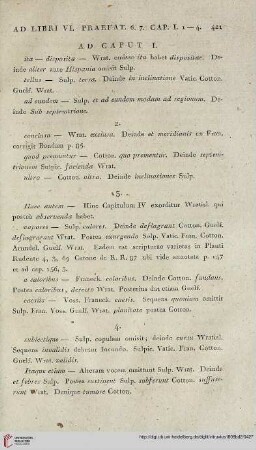 AD LIBRI VI. PRAEFAT. 6. 7. CAP. I. 1 — 4. 421
AD CAPUT I.
ita — disparita — Wrat. eadem ita habet dispositae. De-
inde aliter ratio Hispania omisit Sulp.
tellus — Sulp. terra. Deinde in inclinatione Vatic. Cotton.
Guelf. Wrat.
ad eundem — Sulp. et ad eundem modum ad regionum. De-
inde Sub septentrione
2.
conclusa — Wrat. exclusa. Deinde et meridianis ex Fran.
corrigit Rondem p. 88.
quod premuntur — Cotton. qua prementur. Deinde septen-
trionum Sulpic. facienda Wrat.
ultro — Cotton. ultra. Deinde inclinationes Sulp.
3.
Haec autem — Hinc Capitulum IV exorditur Wratisl. qui
postea observanda habet.
vapores — Sulp. calores. Deinde deflagrant Cotton. Guelf.
deflagrarunt Wrat. Postea exurgendo Sulp. Vatic. Fran. Cotton.
Arundel. Guelf. Wrat. Eadem est scripturae varietas in Plauti
Rudente 4, 3, 69 Catone de R. R. 37 ubi vide annotata p. 457
et ad cap. 156, 3.
a caloribus — Franeck. coloribus. Deinde Cotton. fundans.
Postea coloribus, detecto Wrat. Posterius dat etiam Guelf.
caesiis — Voss. Franeck. caeris. Sequens quoniam omittit
Sulp. Fran. Voss. Guelf. Wrat. planitate postea Cotton.
4.
sublectique — Sulp. copulam omisit; deinde eurus Wratisl.
Sequens invalidis deerant Iucundo. Sulpic. Vatic. Fran. Cotton.
Guelf. Wrat. validis.
Itaque etiam — Alteram vocem omittunt Sulp. Wrat. Deinde
et febres Sulp. Postea sustinent Sulp. subferunt Cotton. suffare-
runt Wrat. Denique tamore Cotton.
UNIVERSITÄTS-
BIBLIOTHEK
HEIDELBERG